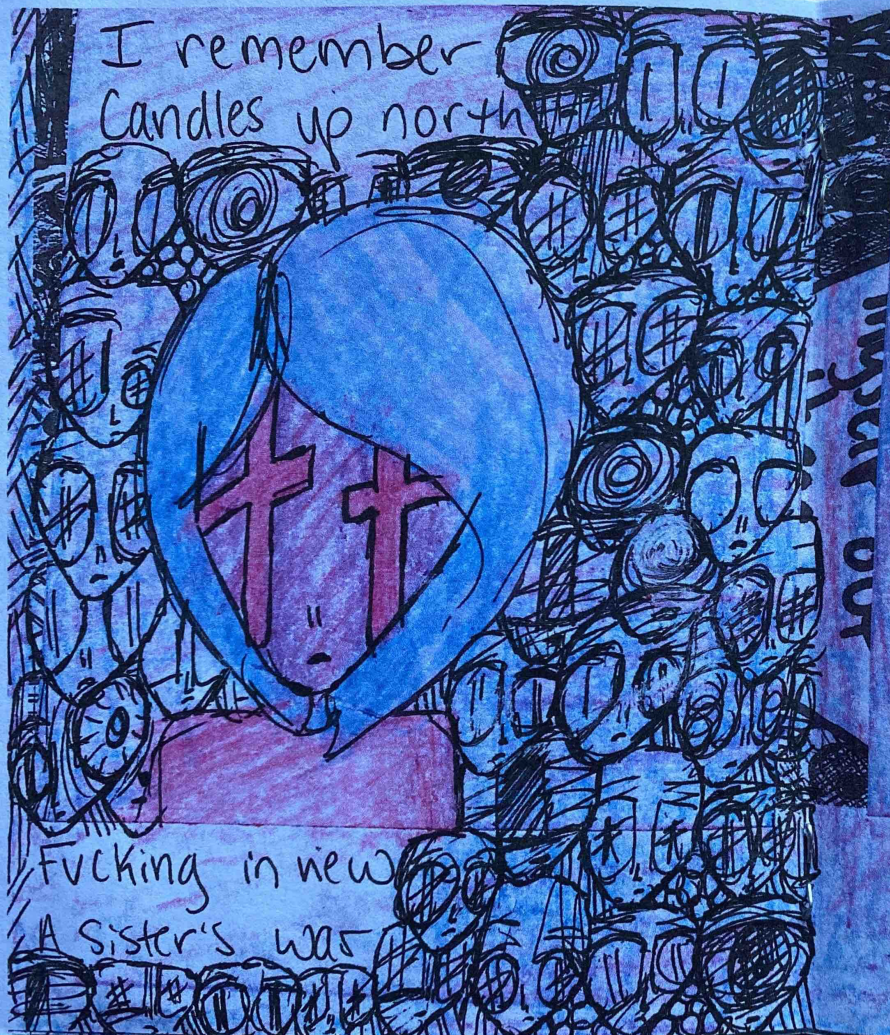 I remember
Candles up north
Fvcking in view
A sister's war
myself out